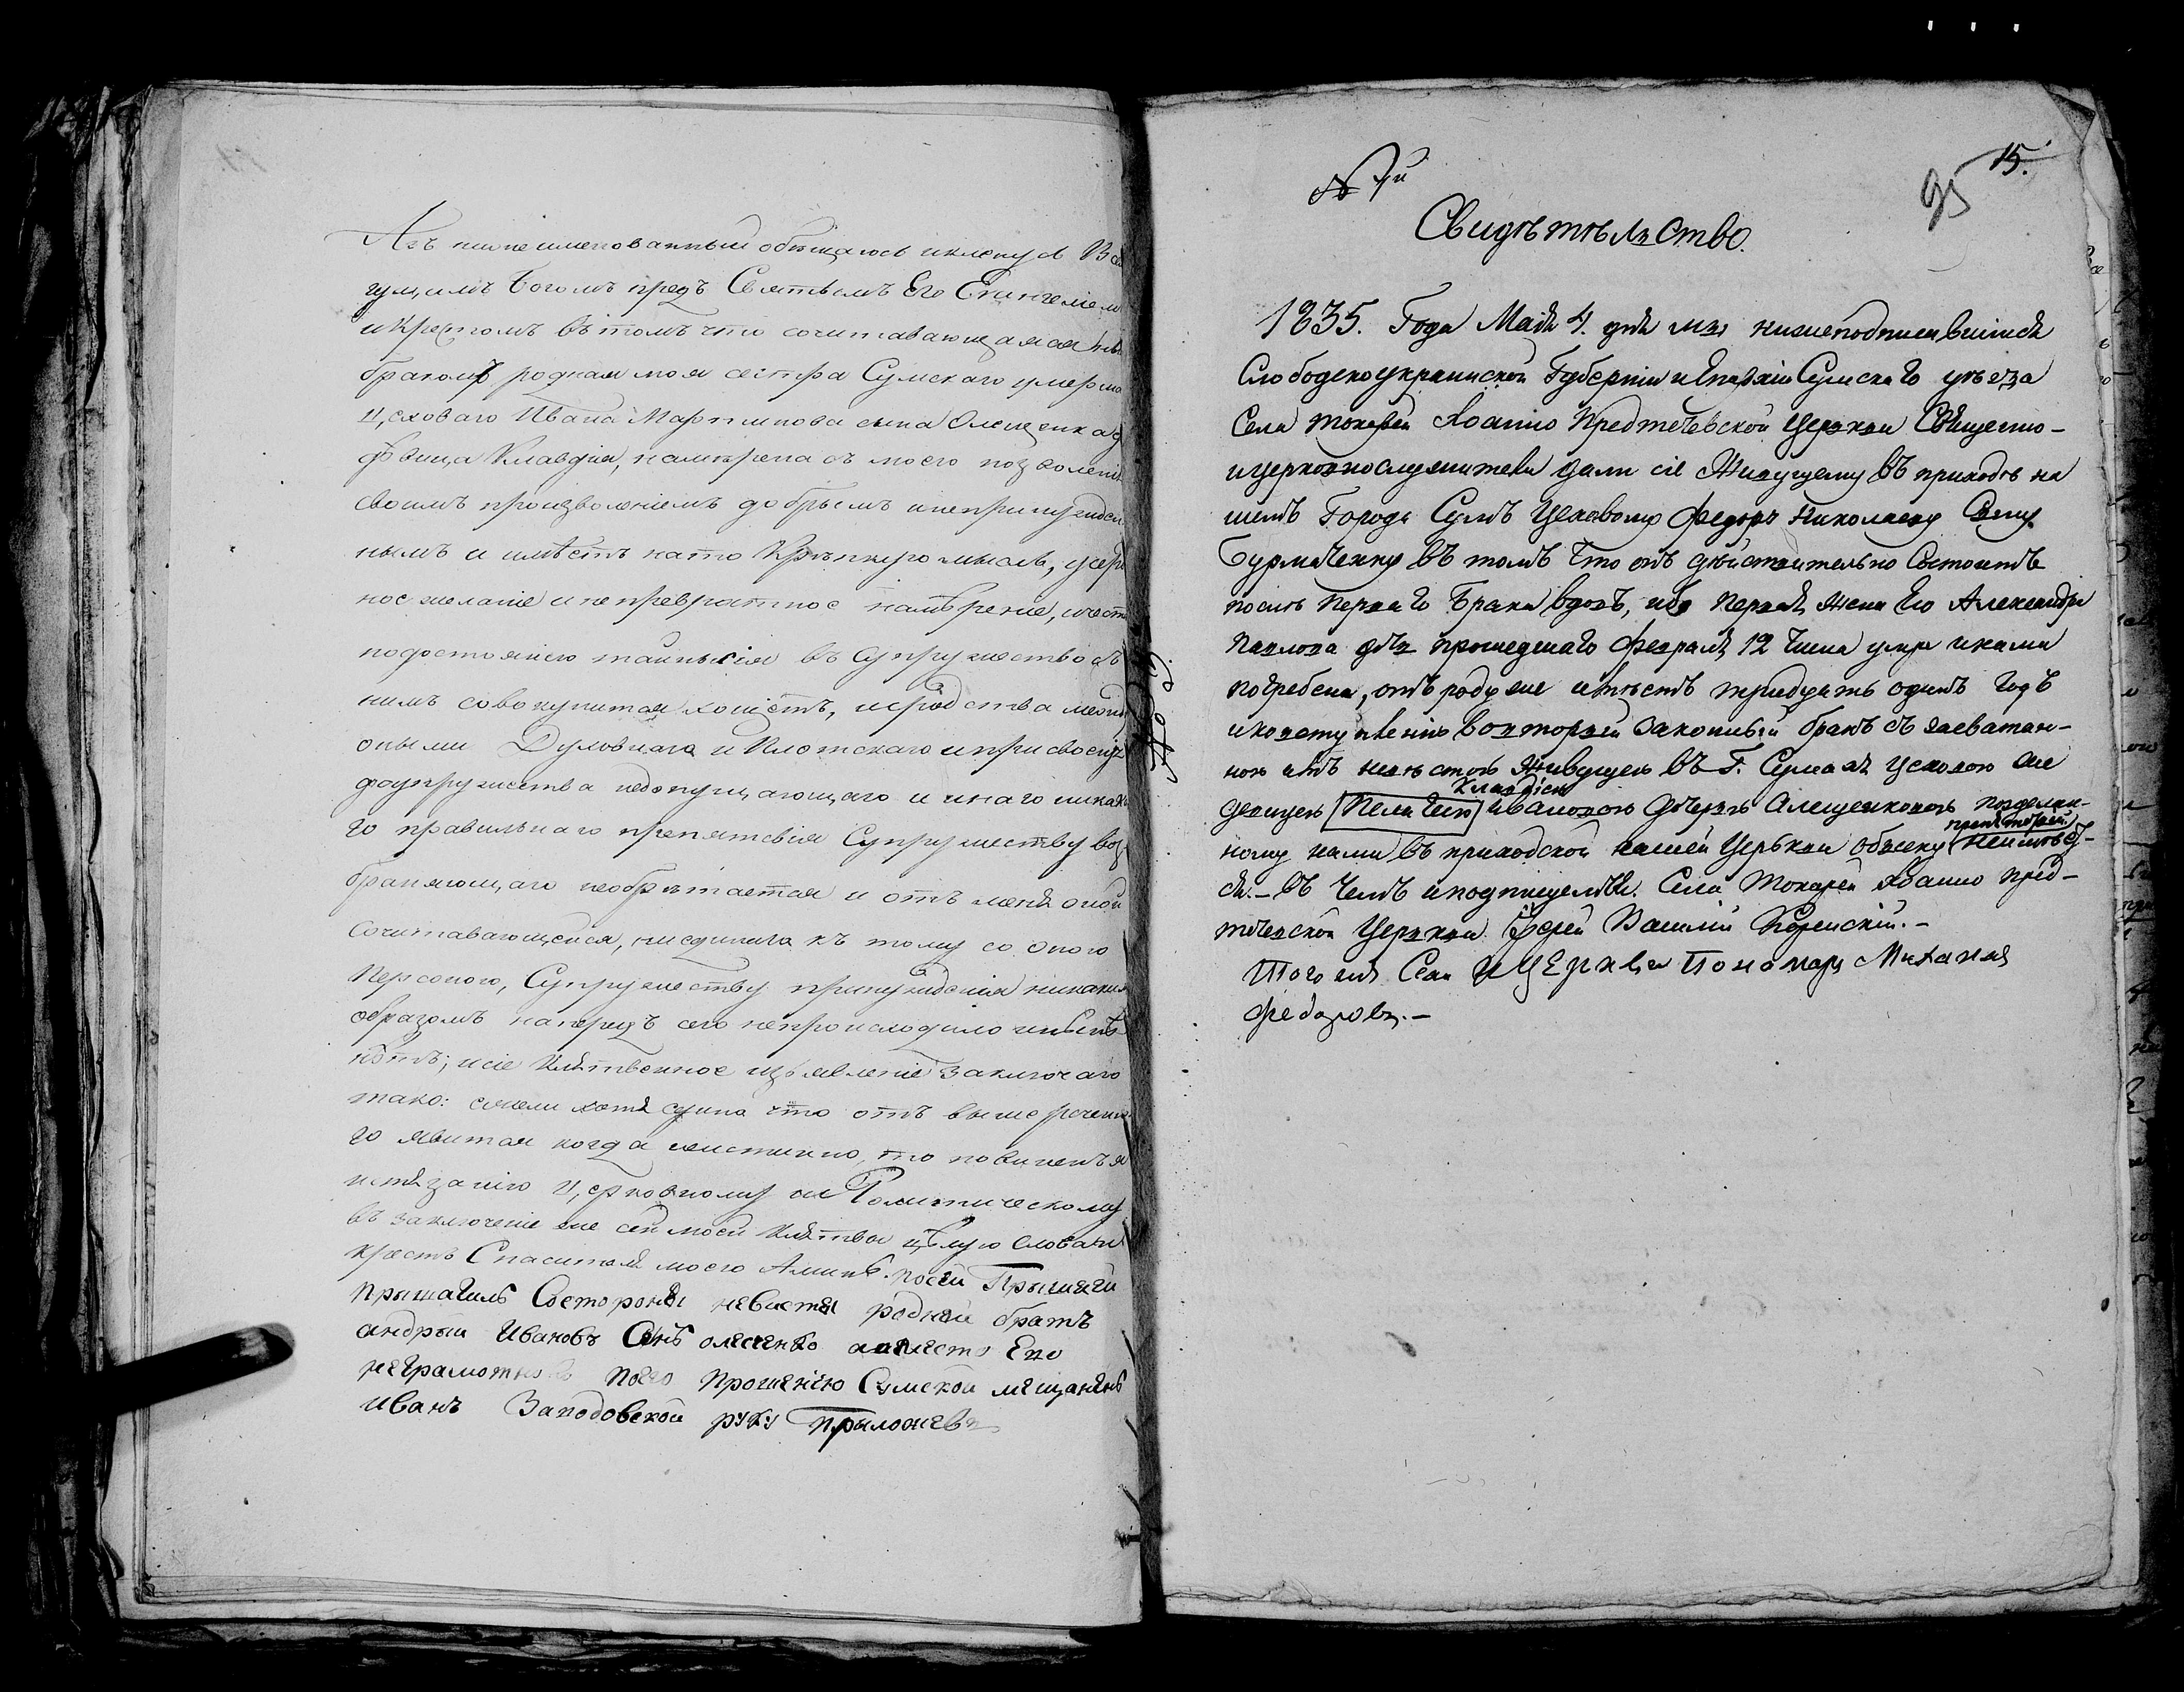 Азъ нижеименованный обѣщаюсь и клянуся Все
гущимъ Богомъ предъ Святымъ Его Евангеліем
и Крестомъ въ томъ что сочитавающаяся
бракомъ родная моя сестра Сумскаго умершо
Цѣховаго Ивана Мартинова сына Олещенка д
ѣвица Клавдія, намѣрена съ моего позволенія
своимъ произволеніемъ добрымъ и непринужден
нымъ и имѣетъ на то крѣпкую мысль, усерд
ное желаніе и непревратное намѣреніе, и чест
по достоянію тайны сія въ супружество съ
нимъ совокупится хощетъ, и сродства межд
оными Духовнаго и Плотскаго и присвоенія
до супружества недопущающаго и инаго никако
го правильнаго препятсвія Супружеству воз
браняющаго необрѣтается и отъ меня оной
Сочитавающейся, ниединага къ тому со оною
Персоною, Супружеству принужденія никаким
образомъ напередъ сего непроисходило и нынѣ
нѣтъ; и сіе Клятвенное изъявленіе заключаю
тако: ежели хотя едино что отъ вышереченна
го явится когда неистинно, то повиненъ я
истязанію Церковному и Политическому
въ заключеніе же сей моей Клятвы цѣлую слова и
крестъ Спасителя моего Аминь. По сей Прысяги
прысягилъ Состороны невисты родной братъ
андрый Ивановъ Сынъ олещенко а вместо Его
неграмотно по его прошенію Сумской мещанинъ
иванъ Заподовской руку прыложевъ
№ 7й
95 15.
Свидѣтѣльство.
1835. Года Маія 4. дня мы нижеподписавшіися
Слободскоукраинской Губерніи и Епархіи Сумскаго уѣзда
Села токарей Іоанно Предтечевской Церкви Священно-
и церковнослужители дали сіе Живущему въ приходѣ на
шемъ Города Сумъ Цеховому Федору Николаеву Сыну
Бурмаченку въ томъ что онъ дѣйствительно Состоитъ
послѣ перваго Брака вдовъ, ибо первая жена Его Александра
Павлова дчь прошедшаго Февраля 12 числа умре и нами
погребена, отъ роду же имѣетъ тридцать одинъ годъ
и ко вступленію во вторый законный бракъ съ засватан-
ною имъ невѣстою Живущею въ Г. Сумахъ цеховою же
Клавдіею
девицею Пелагеею Ивановою Дочерью Алещенковою поздѣлан-
препятствій
ному нами въ приходской нашей Церькви обыску неимѣет-
ся. – въ Чемъ и подпишемся. Села Токарей Іоанно Пред-
течевской Церкви Іерей Василій Кореискій. –
Того жъ Села и Церкви Пономарь Михаилъ
Федоровъ. –